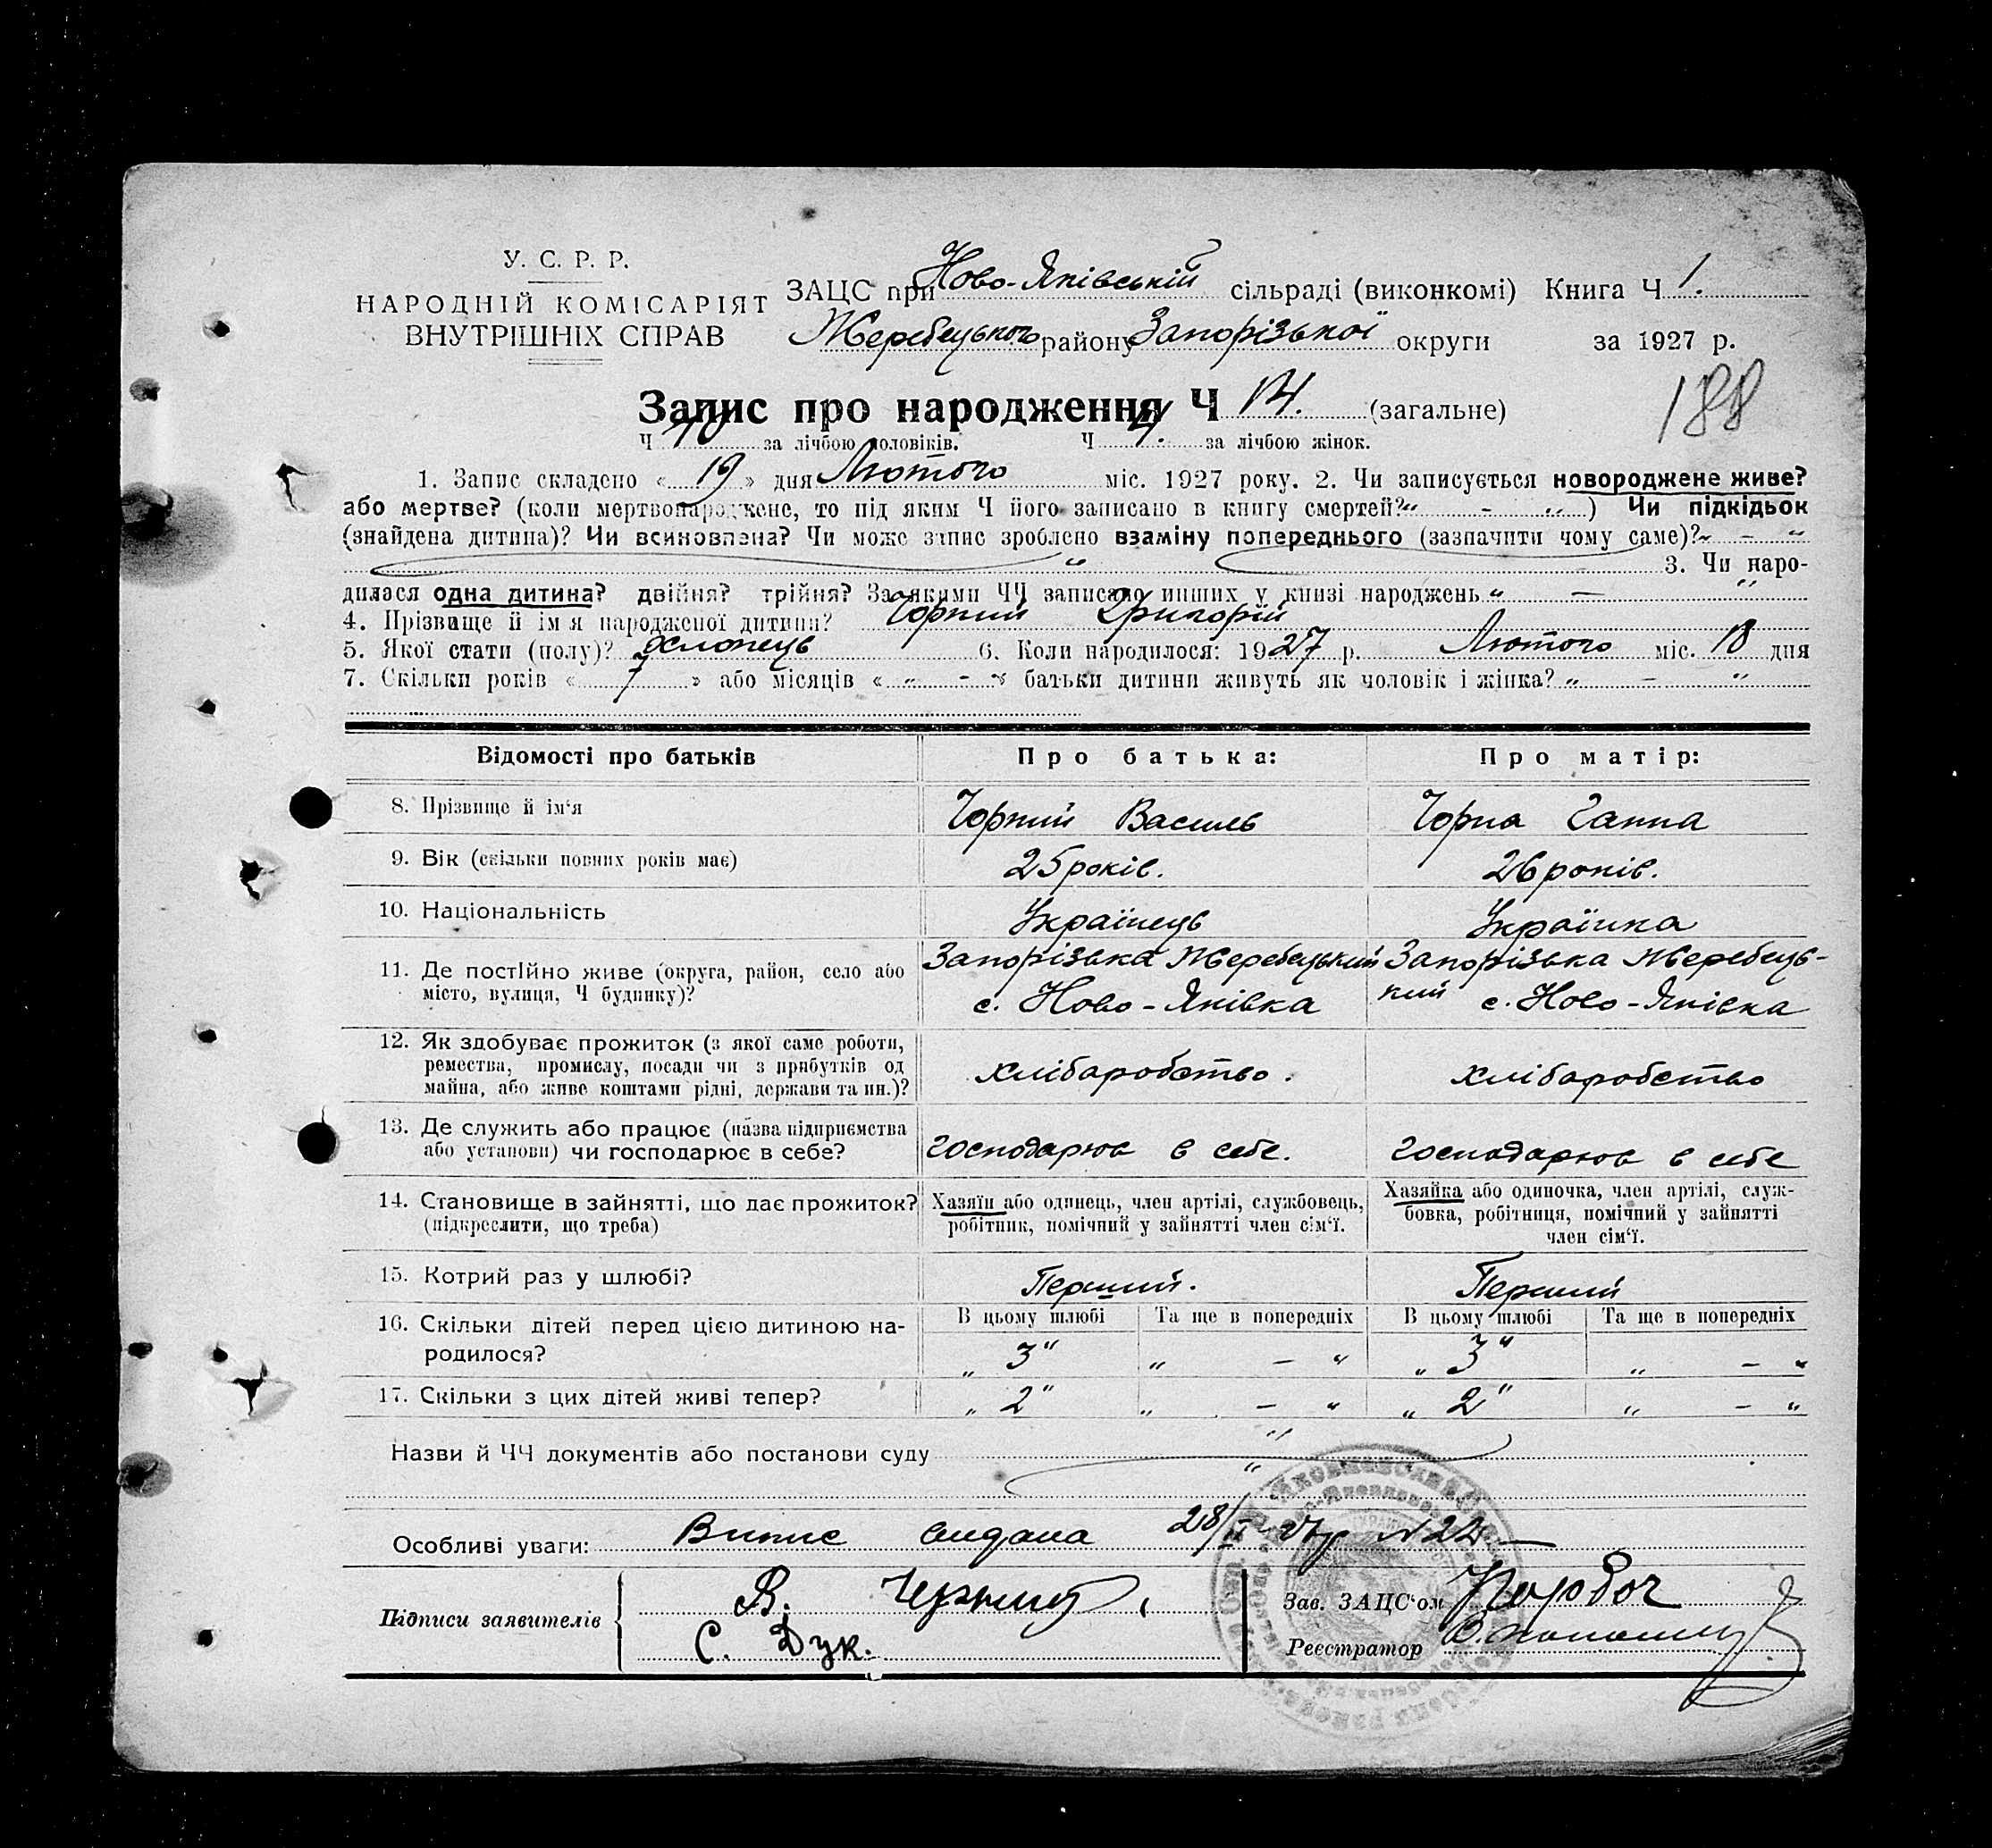 У. С. Р. Р.
НАРОДНІЙ КОМІСАРІЯТ
ВНУТРІШНІХ СПРАВ
ЗАЦС при Ново-Яківській сільраді (виконкомі) Книга Ч 1.
Жеребецького району Запорізької округи за 1927 р.
188
Запис про народження Ч 14. (загальне)
Ч 10 за лічбою чоловіків. Ч 4. за лічбою жінок.
1. Запис складено « 19 » дня Лютого міс. 1927 року. 2. Чи записується новороджене живе?
або мертве? (коли мертвонароджене, то під яким Ч його записано в книгу смертей? „ - „ ) Чи підкідьок
(знайдена дитина)? Чи всиновлена? Чи може запис зроблено взаміну попереднього (зазначити чому саме)? „ - “
„ 3. Чи наро-
дилася одна дитина? двійня? трійня? За якими ЧЧ записано инших у книзі народжень „ — “
4. Прізвище й ім'я народженої дитини? Чорний Григорій
5. Якої стати (полу)? хлопець 6. Коли народилося: 1927 р. Лютого міс. 18 дня
7. Скільки років « 7 » або місяців « „ - “ » батьки дитини живуть як чоловік і жінка? „ — “
Відомості про батьків Про батька: Про матір:
8. Прізвище й ім'я Чорний Василь Чорна Ганна
9. Вік (скільки повних років має) 25 років. 26 років.
10. Національність Українець Українка
11. Де постійно живе (округа, район, село або Запорізька Жеребецький Запорізька Жеребець-
місто, вулиця, Ч будинку)? с. Ново-Яківка кий с. Ново-Яківка
12. Як здобуває прожиток (з якої саме роботи,
ремества, промислу, посади чи з прибутків од хлібаробство. хлібаробство
майна, або живе коштами рідні, держави та ин.)?
13. Де служить або працює (назва підприємства
або установи) чи господарює в себе? господарює в себе. господарює в себе
14. Становище в зайнятті, що дає прожиток? Хазяїн або одинець, член артілі, службовець, Хазяйка або одиночка, член артілі, служ-
(підкреслити, що треба) робітник, помічний у зайнятті член сім'ї. бовка, робітниця, помічний у зайнятті
член сім'ї.
15. Котрий раз у шлюбі? Перший. Перший
16. Скільки дітей перед цією дитиною на- В цьому шлюбі Та ще в попередніх В цьому шлюбі Та ще в попередніх
родилося? „ 3 “ „ - “ „ 3 “ „ - “
17. Скільки з цих дітей живі тепер? „ 2 “ „ - “ „ 2 “ „ - “
Назви й ЧЧ документів або постанови суду „
„
Особливі уваги: Випис видана 28/I N 22 —
Підписи заявителів В. Чорний Зав. ЗАЦС'ом
С. Дук. Реєстратор